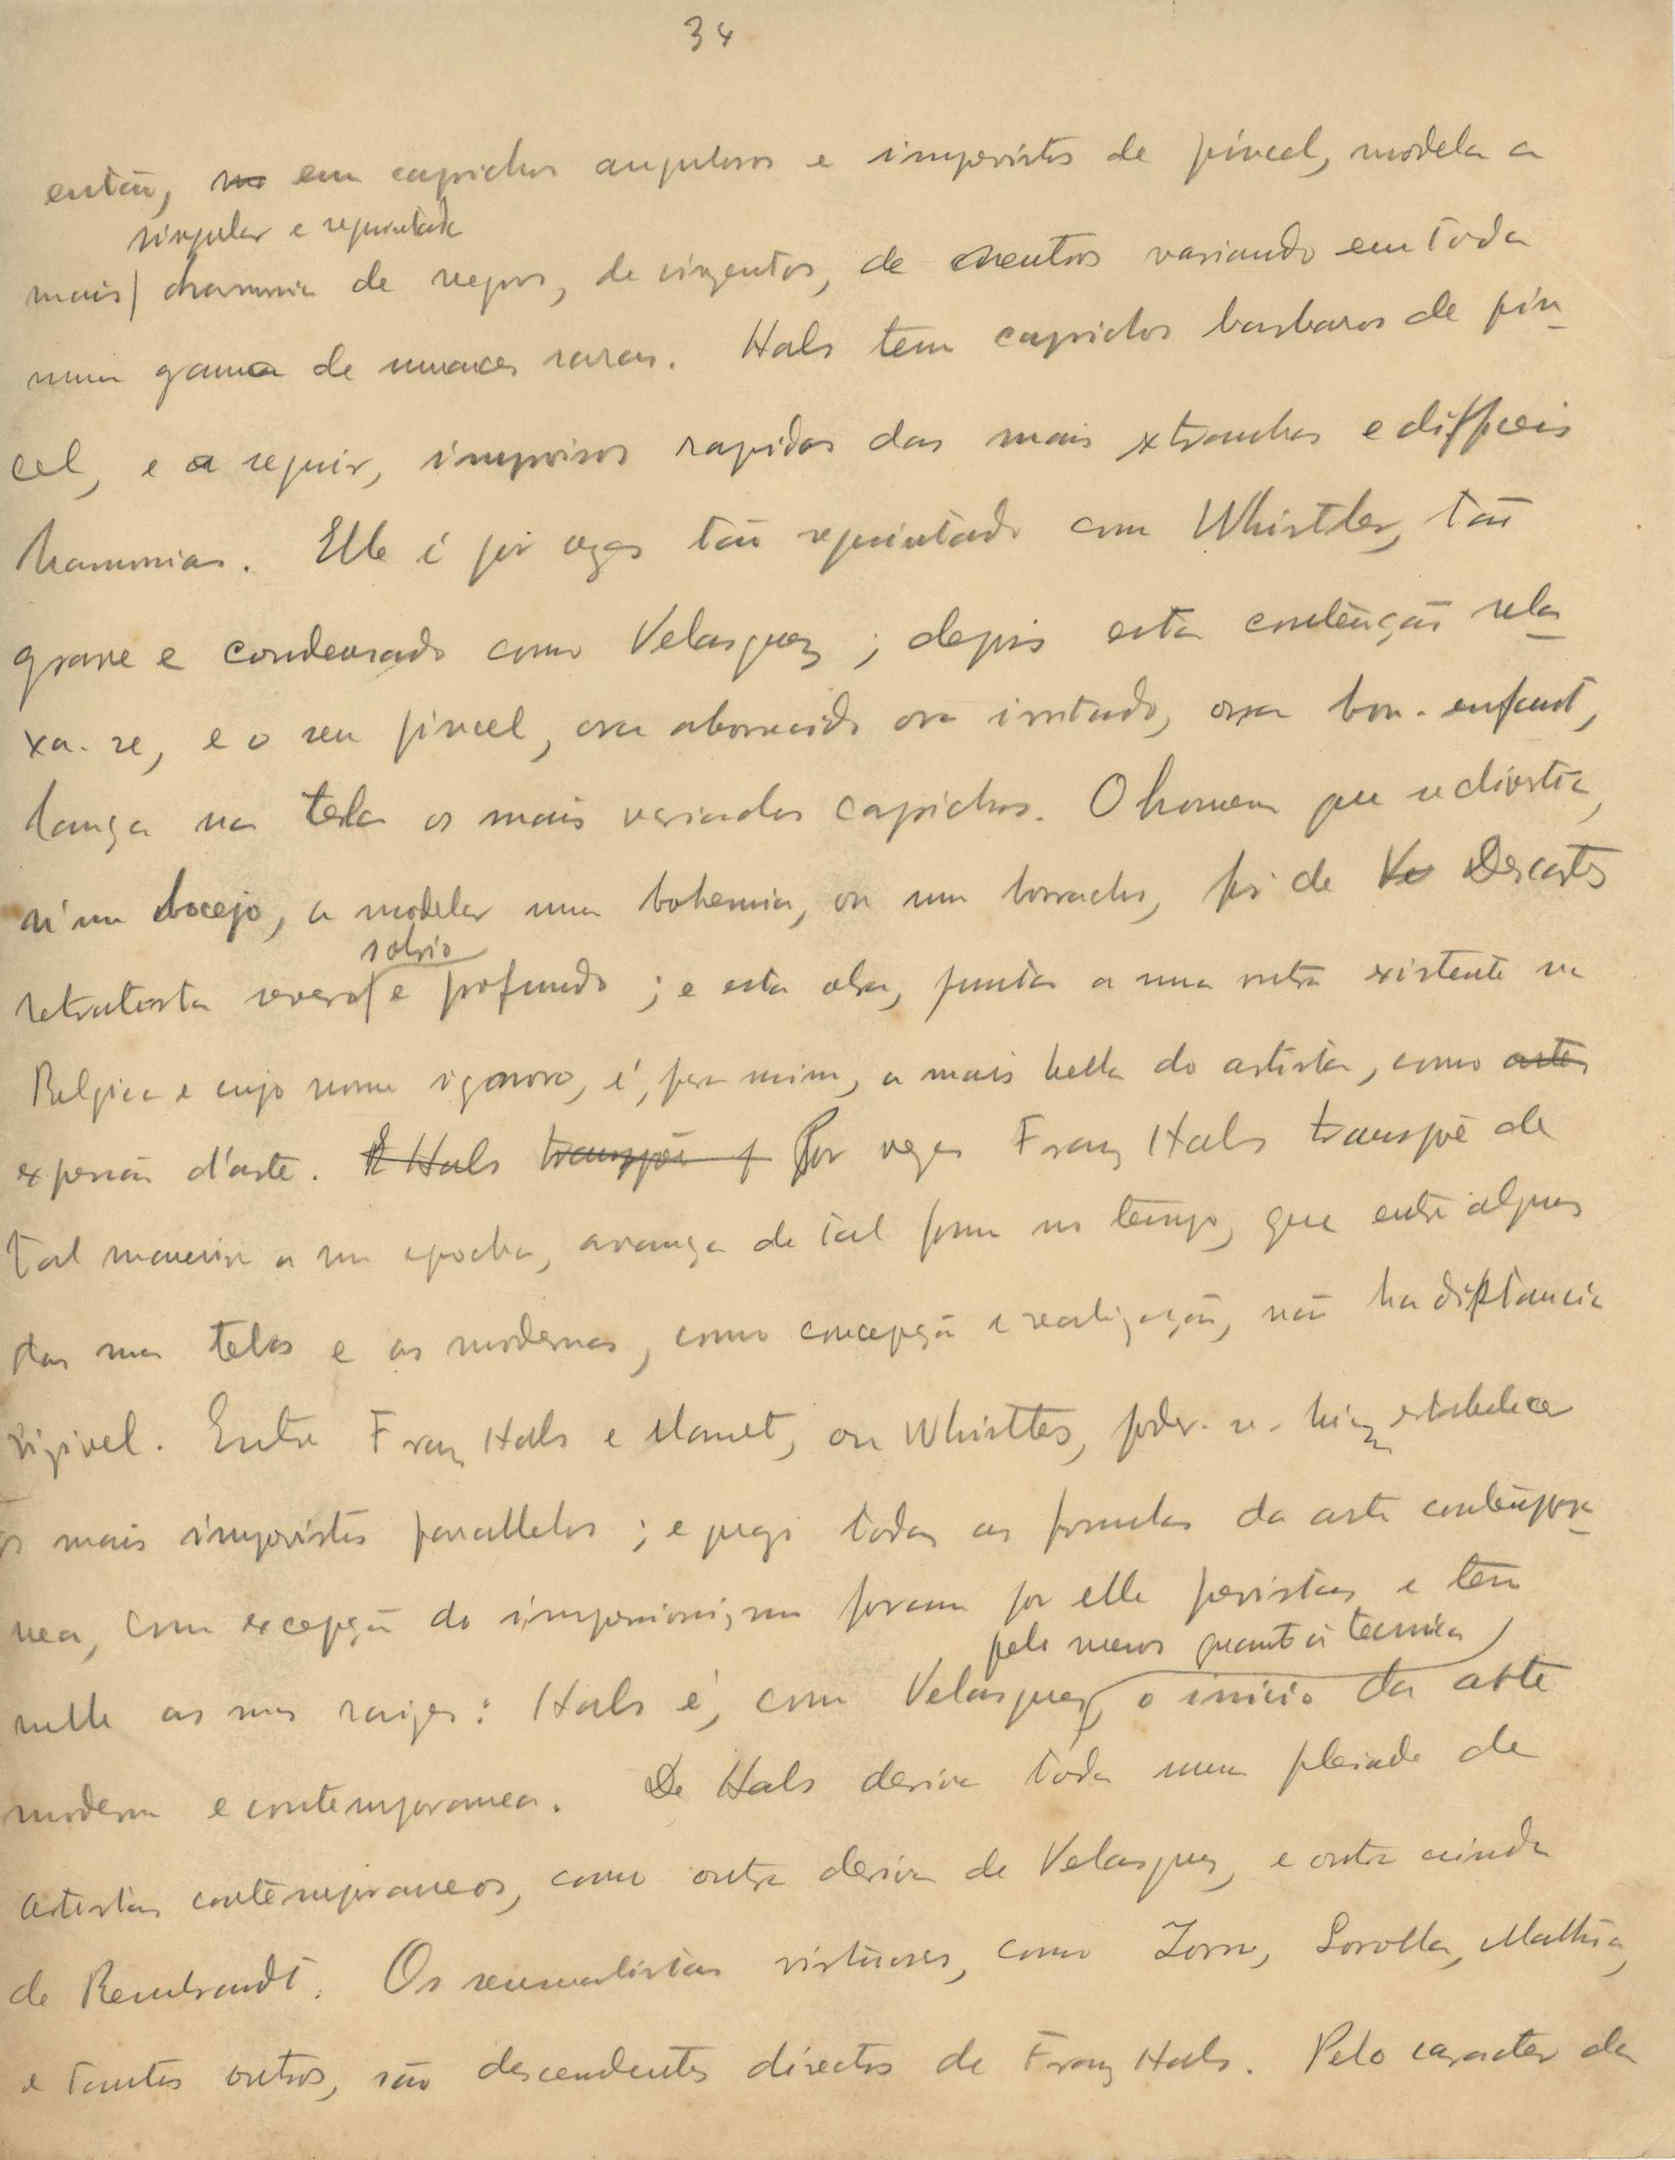 34
então, no em caprichos angulosos e imprevistos de pincel, modela a
singular e requintada
mais harmonia de negros, de cinzentos, de neutros variando em toda
uma gama de nuances raras. Hals tem caprichos barbaros de pin-
cel, e a seguir, improvisos rapidos das mais xtranhas e difficeis
harmonias. Elle é por vezes tão requintado com Whistler, tão
grave e condensado como Velasquez; depois esta contenção rela-
xa-se, e o seu pincel, ora aborrecido ora irritado, ora bon-enfant,
lança na tela os mais variados caprichos. O homem que se divertia,
n'um bocejo, a modelar uma bohemia, ou um borracho, foi de Ve Descartes
sobrio
retratista severo e profundo; e esta obra, junta a uma outra existente na
Belgica e cujo nome ignoro, é, para mim, a mais bella do artista, como arte
expressão d'arte. Hals transpõe Por vezes Franz Hals transpõe de
tal maneira a sua epocha, avança de tal forma no tempo, que entre algumas
das suas telas e as modernas, como concepção e realização, não ha distancia
sensivel. Entre Franz Hals e Manet, ou Whistler, poder-se-hiam estabelecer
os mais imprevistos parallelos; e quasi todas as formulas da arte contempora-
nea, com excepção do impressionismo foram por elle previstas e têm
pelo menos quanto á technica
nelle as suas raizes: Hals é, com Velasquez, o inicio da arte
moderna e contemporanea. De Hals deriva toda uma pleiade de
artistas contemporaneos, como outra deriva de Velasquez, e outra ainda
de Rembrandt. Os sensualistas virtuoses, como Zorn, Sorolla,
e tantos outros, são descendentes directos de Franz Hals. Pelo caracter da